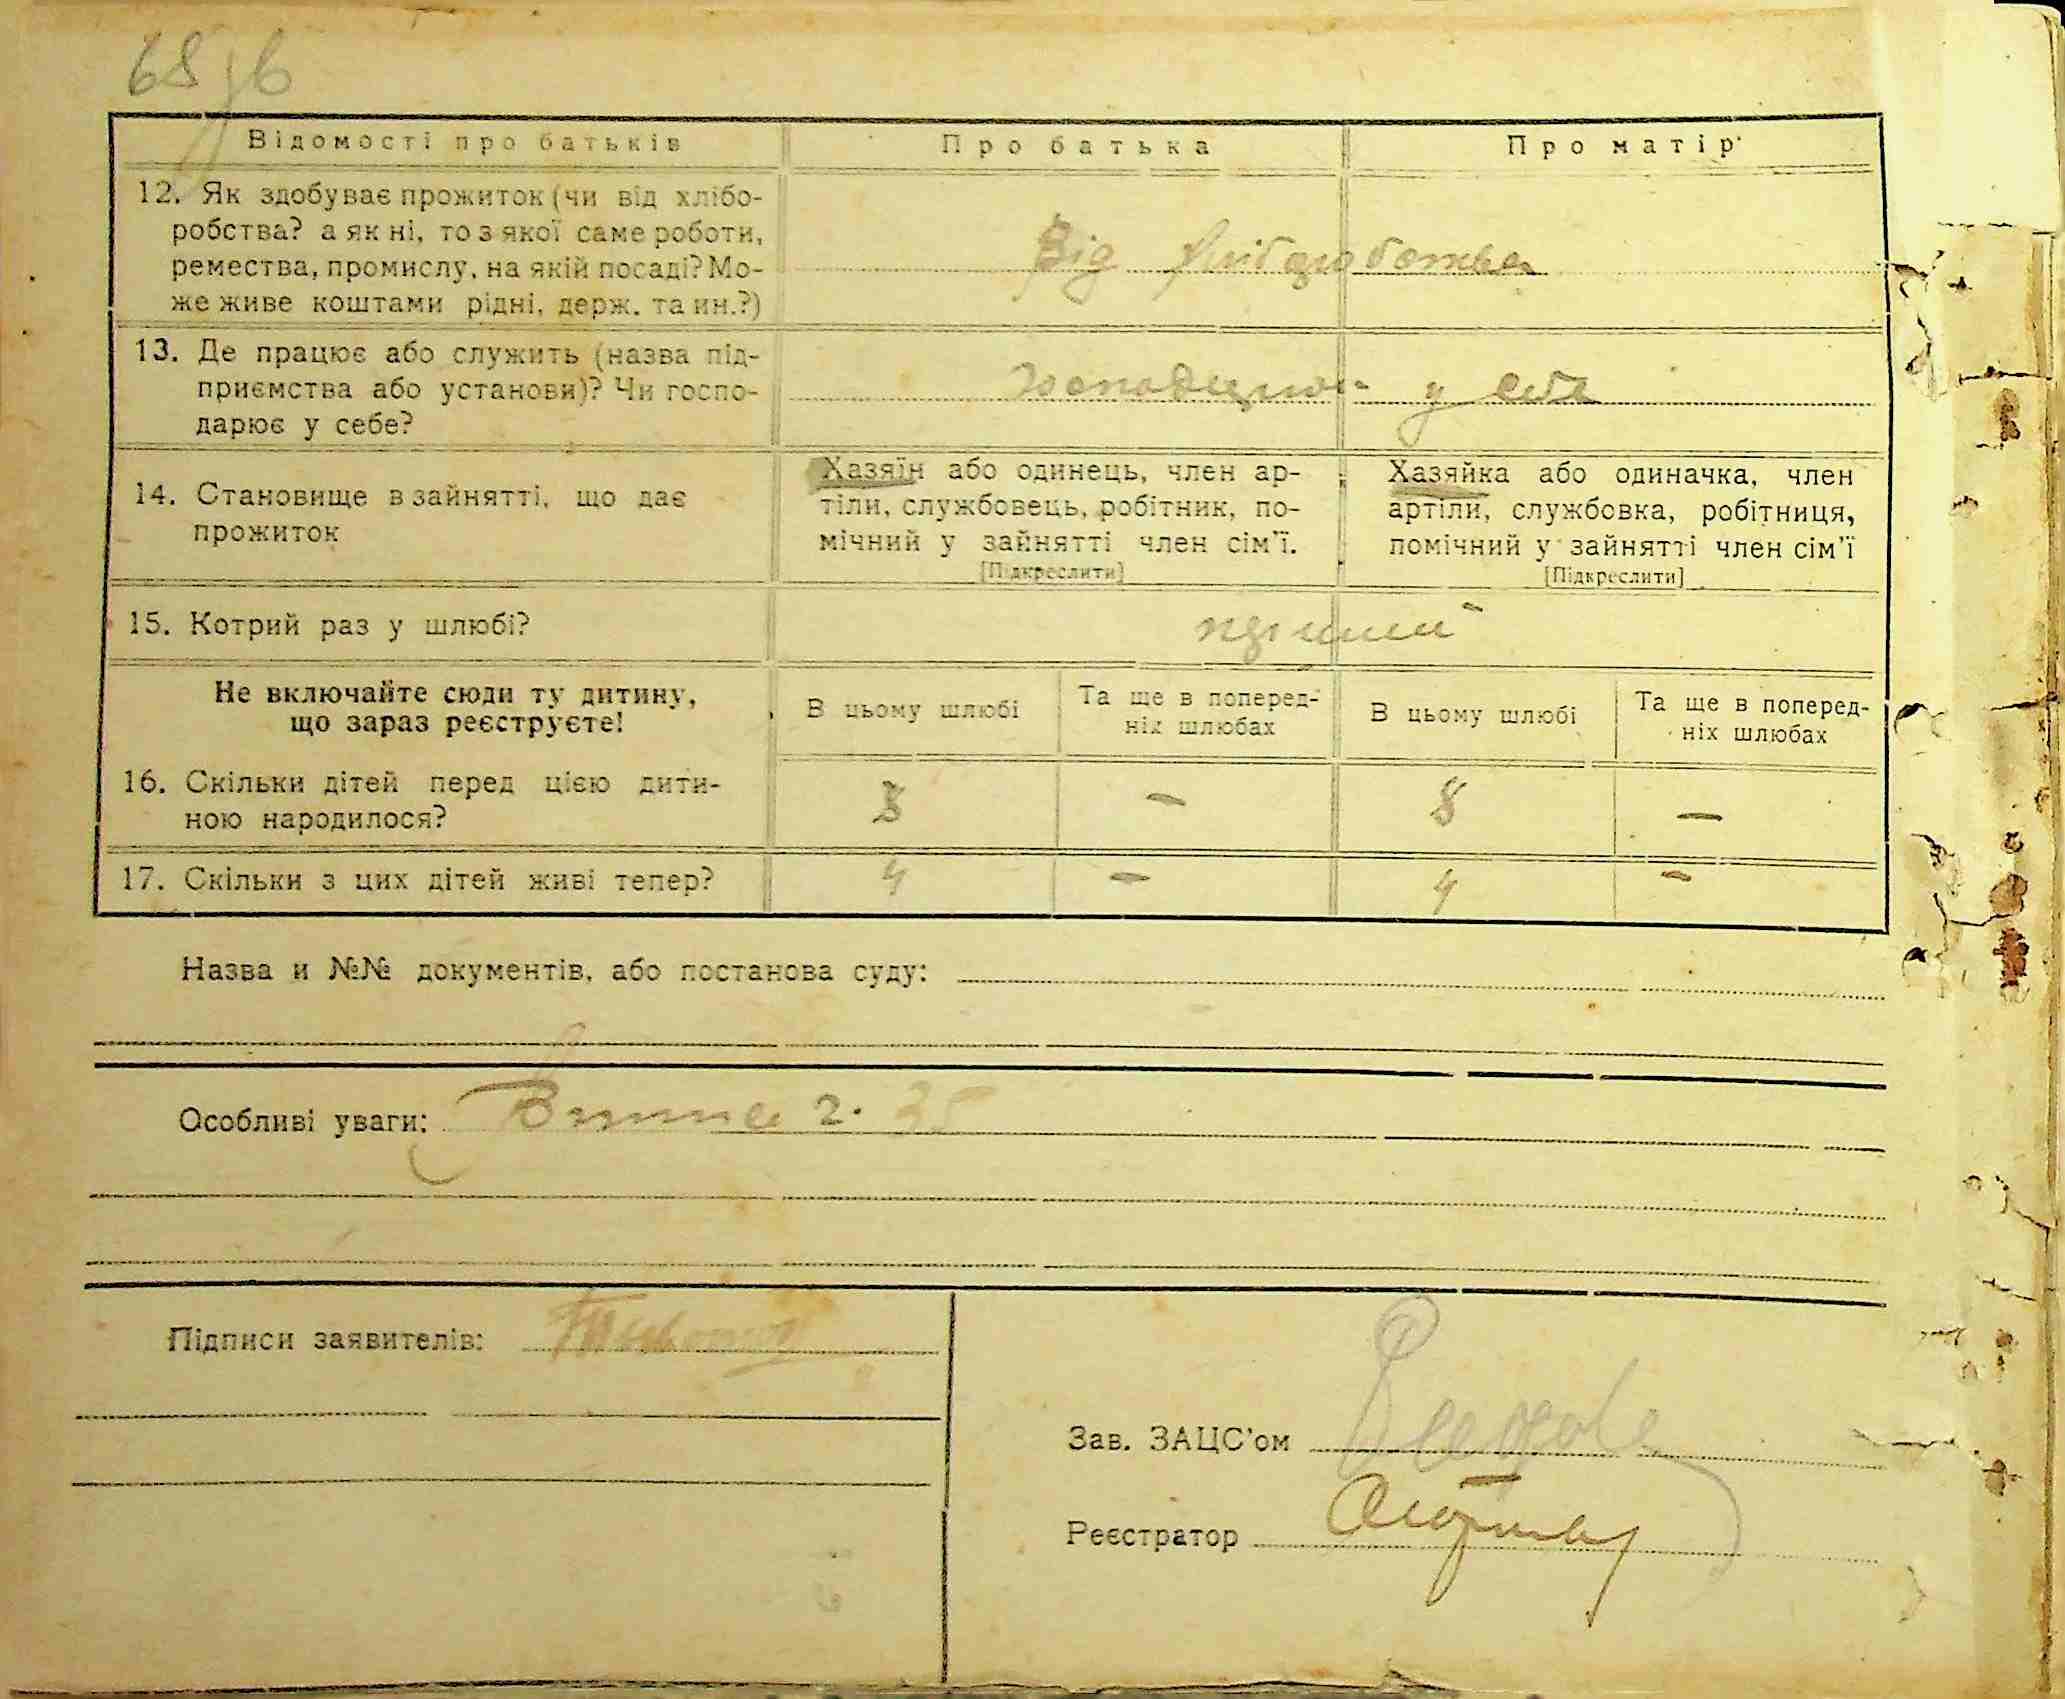 68
Відомості про батьків
Про батька
Про матір
12. Як здобуває прожиток (чи від хлібо-
робства? а як ні, то з якої саме роботи,
ремества, промислу, на якій посаді? Мо-
же живе коштами рідні, держ. та ин.?)
Від хліборобства
13. Де працює або служить (назва під-
приємства або установи)? Чи госпо-
дарює у себе?
у себе
14. Становище в зайнятті, що дає
прожиток
Хазяїн або одинець, член ар-
тіли, службовець, робітник, по-
мічний у зайнятті член сім'ї.
[Підкреслити]
Хазяйка або одиначка, член
артіли, службовка, робітниця,
помічний у зайнятті член сім'ї
[Підкреслити]
15. Котрий раз у шлюбі?
перший
Не включайте сюди ту дитину,
що зараз реєструєте!
В цьому шлюбі
Та ще в поперед-
ніх шлюбах
В цьому шлюбі
Та ще в поперед-
ніх шлюбах
16. Скільки дітей перед цією дити-
ною народилося?
8 – 8 –
17. Скільки з цих дітей живі тепер?
4 – 4 –
Назва и №№ документів, або постанова суду:
Особливі уваги:
Підписи заявителів:
Зав. ЗАЦС'ом
Реєстратор